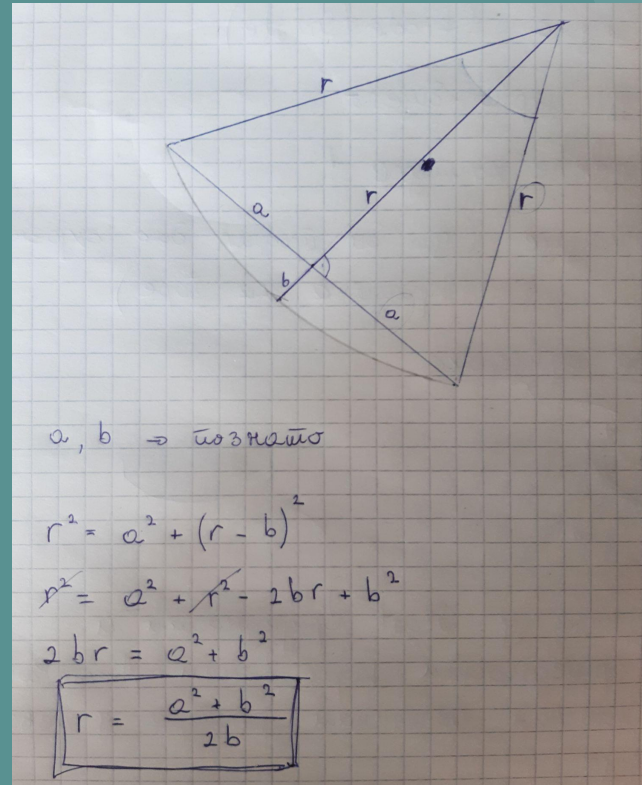 r
r
r
a
b
a
a, b ⇒ познато
r² = a² + (r - b)²
r² = a² + r² - 2br + b²
2br = a² + b²
r = (a² + b²) / 2b